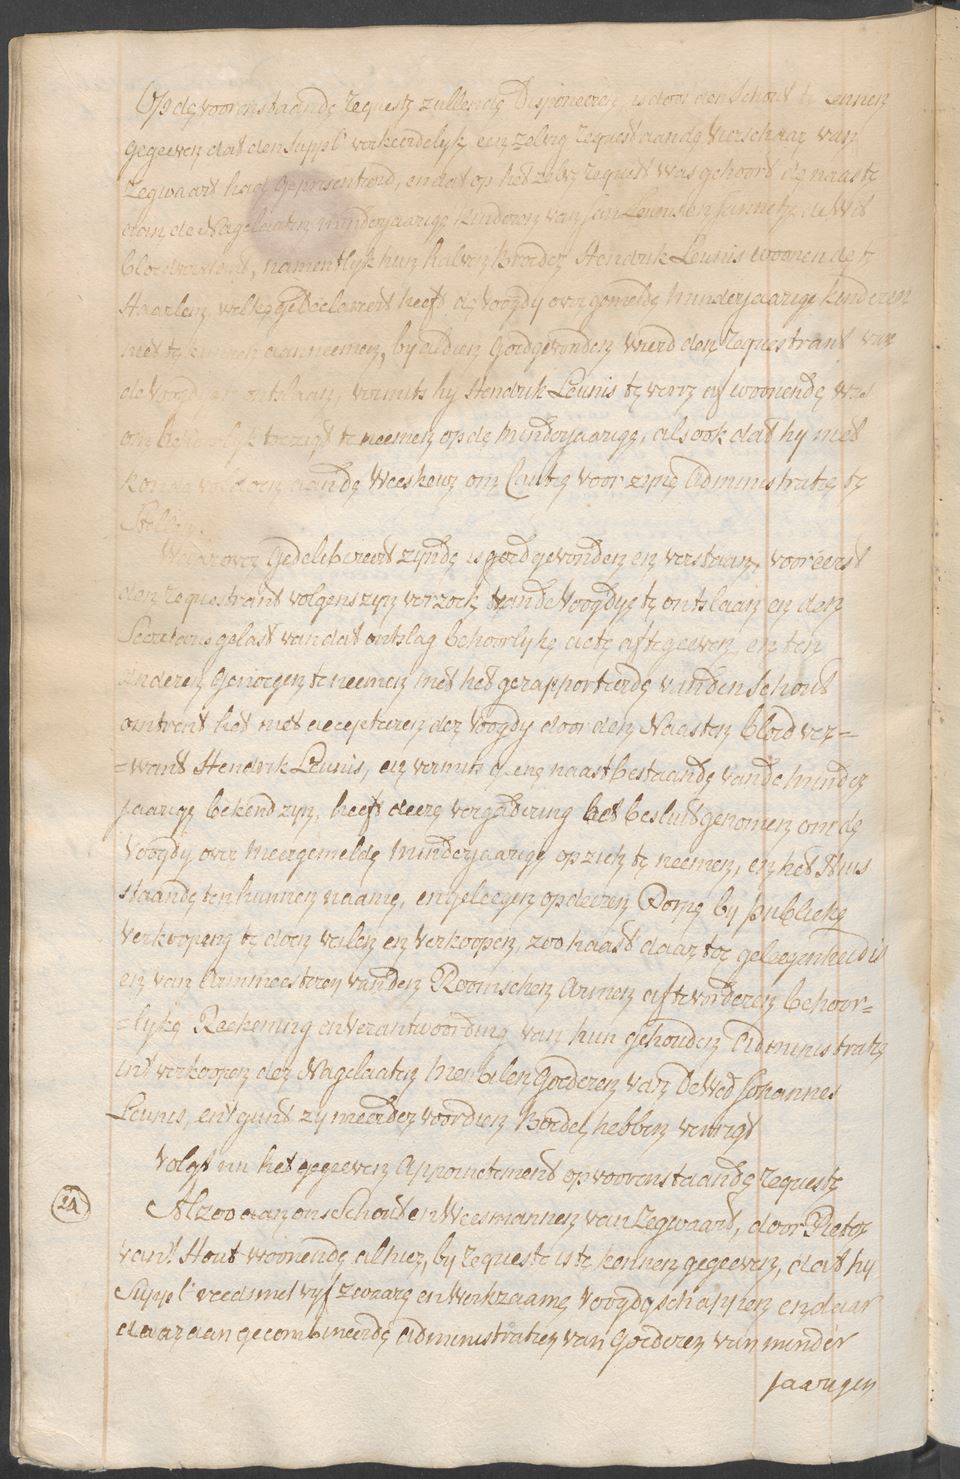 Op de voorenstaande Requeste zullende Disponeeren, is door den Schout te kennen
gegeeven dat den Suppl:t verkeerdelijk een zelvig Request aan de Vierschaar van
Zegwaart had gepresenteerd, en dat op het zelve Request was gehoord de naaste
van de Nagelaaten minderjaarige kinderen van Jan Leunis en Jannetje
bloedverwant, namentlijk hun halven Broeder Hendrik Leunis woonende te
Haarlem, welke gedeclareert heeft de Voogdij over gemelde minderjaarige kinderen
niet te kunnen aanneemen, by aldien Goedgevonden wierd den Requestrant van
de Voogdij te ontslaan, vermits hij Hendrik Leunis te verre af woonende was
om behoorlijk toezigt te neemen op de Minderjaarige, als ook dat hij niet
konde voldoen aan de Weeskeur om Cautie voor zijne Administratie te
Stellen.
Waar over Gedelibereert zijnde is goedgevonden en verstaan, voor eerst
den Requestrant volgens zijn verzoek van de Voogdije te ontslaan en den
Secretaris gelast van dat ontslag behoorlijke acte af te geeven, en ten
anderen Genoegen te neemen met het gerapporteerde van den Schout
omtrent het niet accepteeren der Voogdij door den Naasten bloedver=
=want Hendrik Leunis, en vermits geene naastbestaande van de minder
jaarige bekend zijn, heeft deeze vergadering het besluit genomen om de
Voogdij over meergemelde Minderjaarige op zich te neemen, en het Huis
staande ten hunnen naame, en geleegen op deezen Dorpe bij publieke
Verkooping te doen veilen en verkoopen, zoo haast daar toe geleegenheid is
en van Armmeesteren van den Roomschen Armen af te vorderen behoor=
=lijke Reekening en verantwoording van hun gehouden Administratie
int verkoopen der Nagelaaten Meubilen Goederen van De Wed Johannes
Leunis, en 't gunt zij meerder voor dien Boedel hebben verrigt
Volgt nu het gegeeven Appoinctement op voorenstaande Requeste
2a
Alzoo aan ons Schout en Weesmannen van Zegwaard, door Pieter
van't Hout woonende alhier, bij Requeste is te kennen gegeeven, dat hij
Suppl:t reeds met vijf zwaare en werkzaame voogdijschappen en daar
daar aan gecombineerde administratien van Goederen van minder
jaarigen